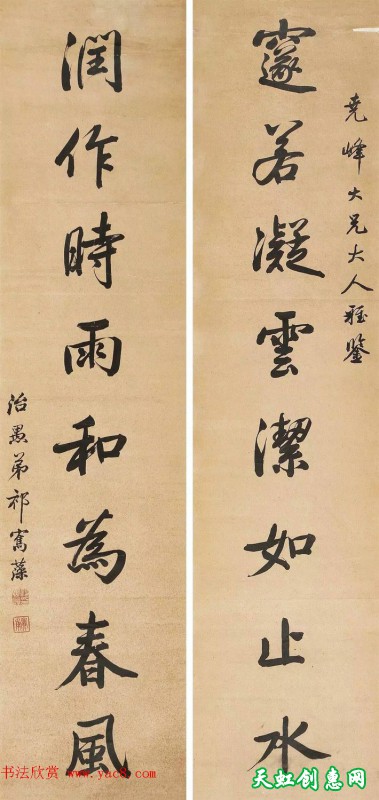 堯峰大兄大人雅鑒
邃若凝雲潔如止水
潤作時雨和為春風
治愚弟祁寯藻
书法欣赏 www.yac8.com
天虹创惠网